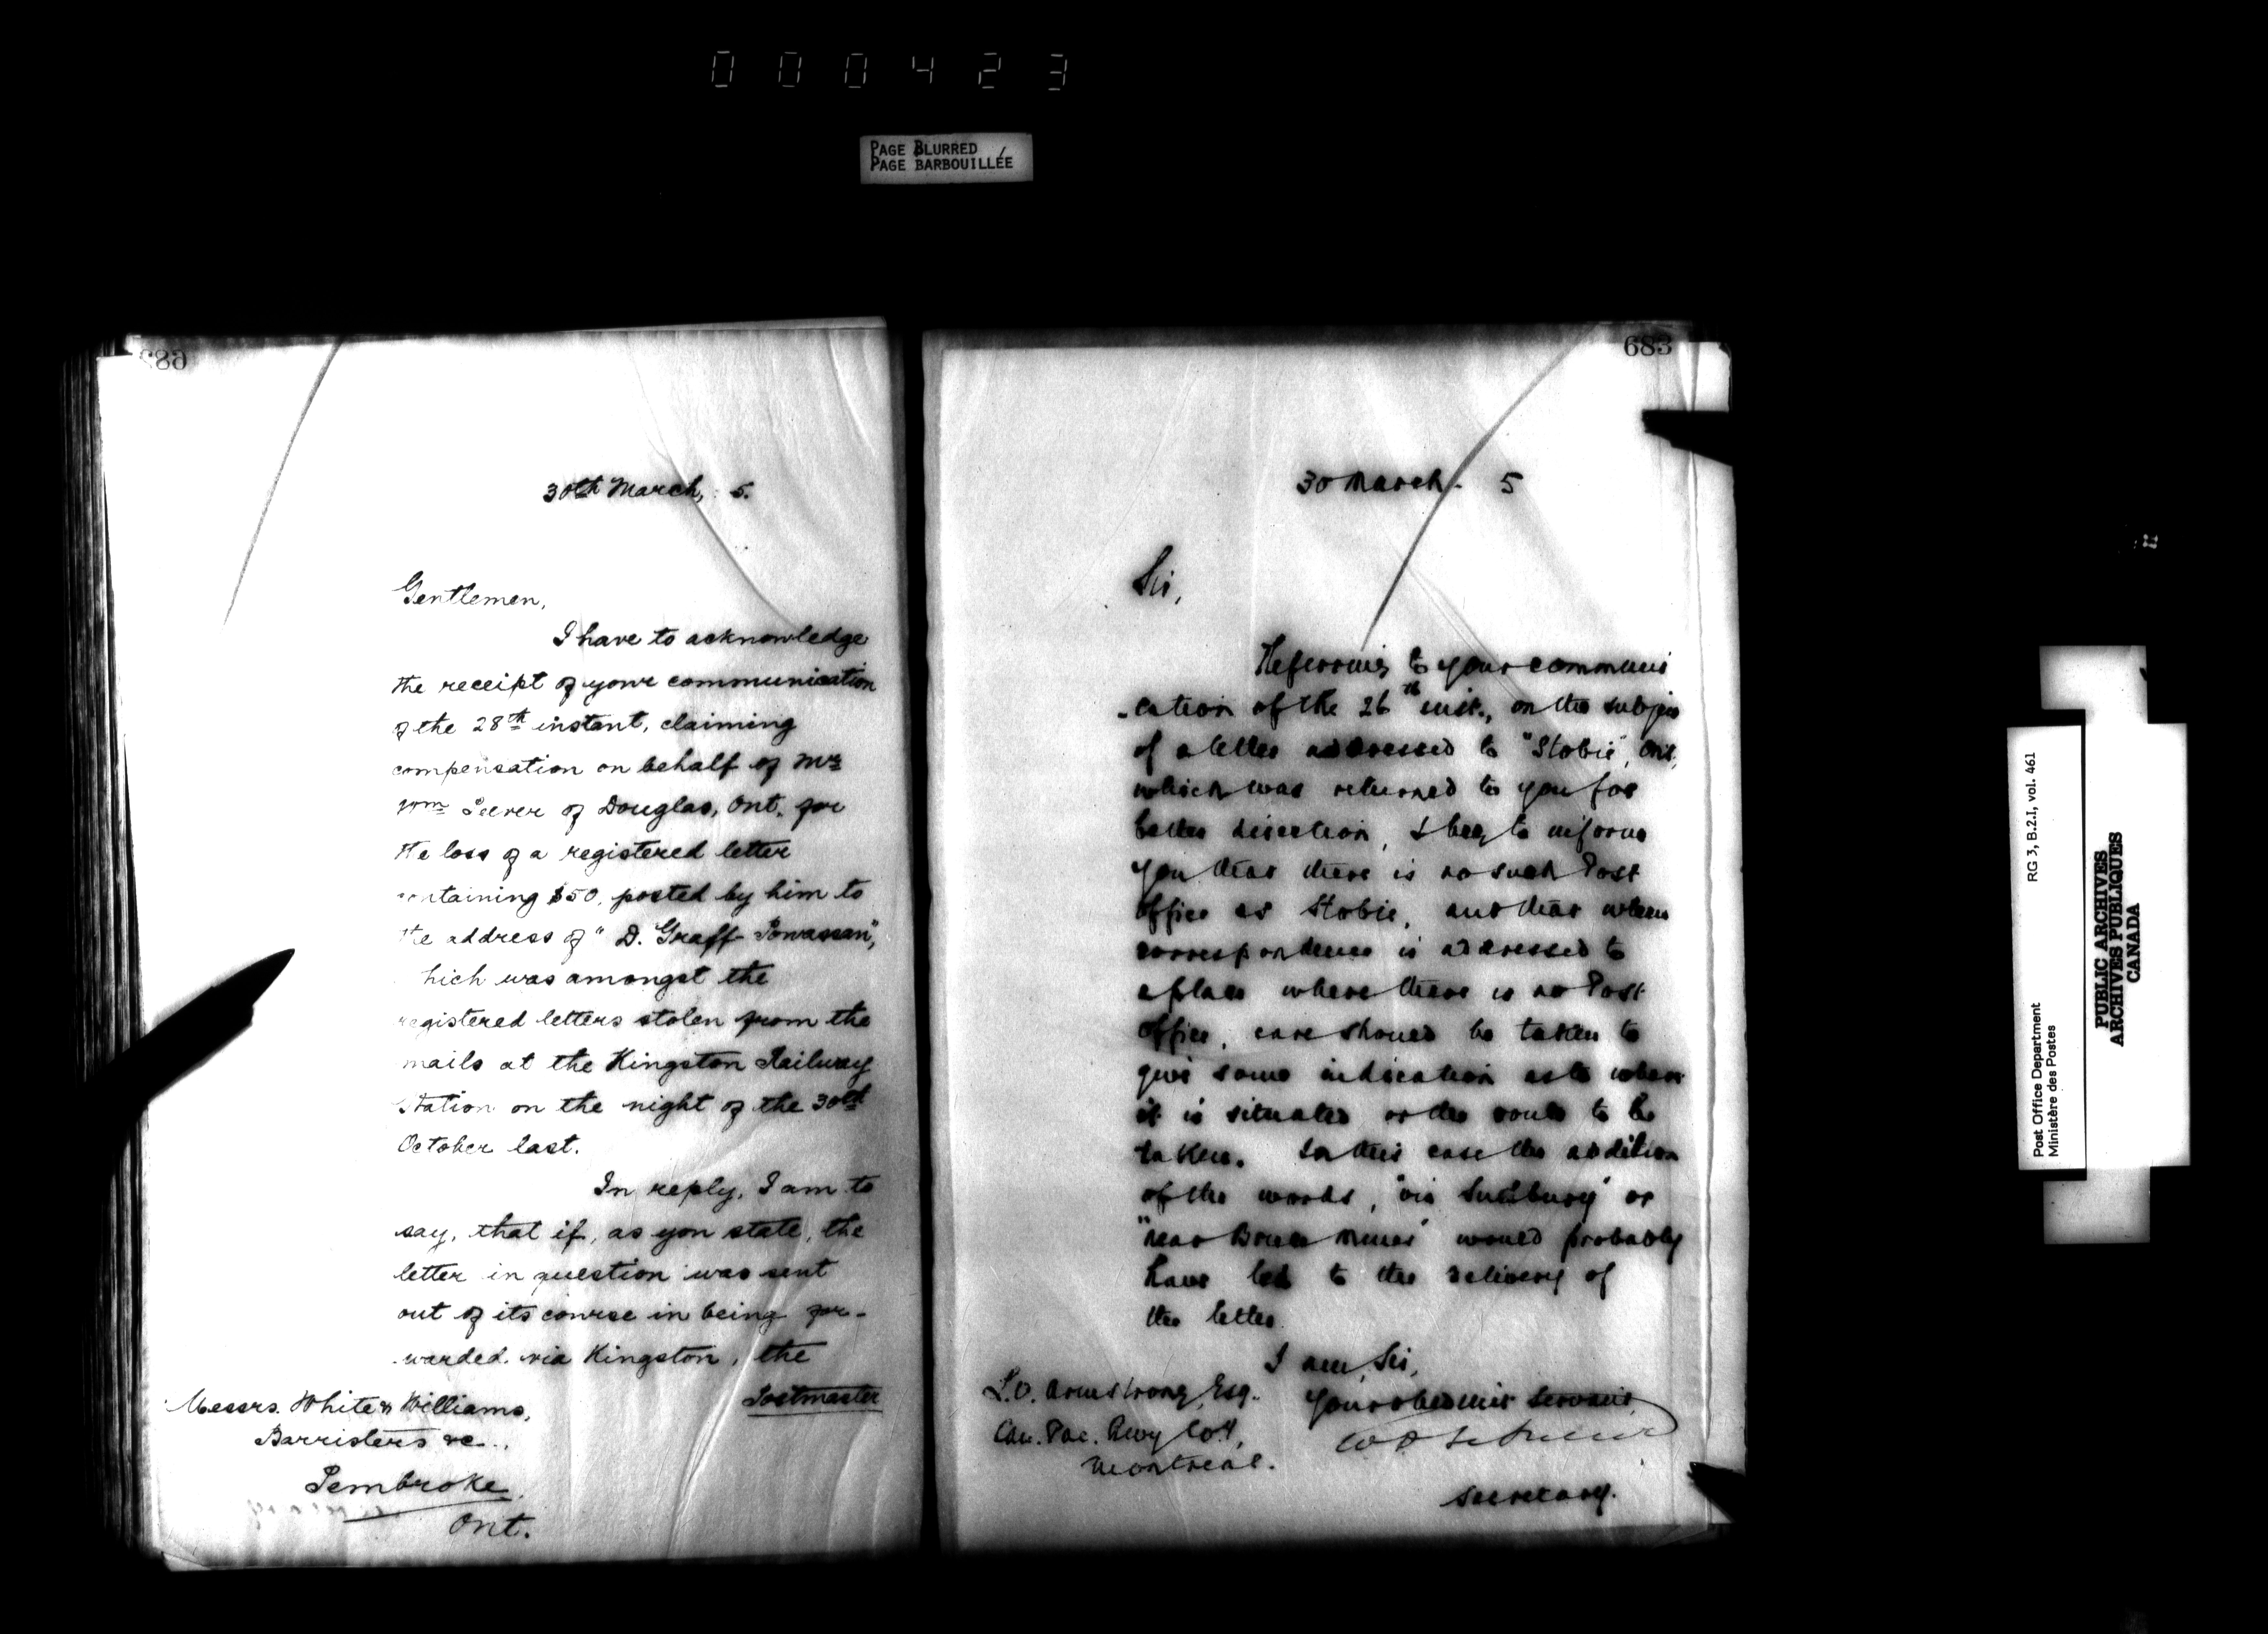 000423
PAGE BLURRED
PAGE BARBOUILLÉE
30th March, 5.
Gentlemen,
I have to acknowledge
the receipt of your communication
of the 28th instant, claiming
compensation on behalf of Mr
Wm of Douglas, Ont. for
the loss of a registered letter
ontaining $50, posted by him to
the address of "D. Graff Powassan",
hich was amongst the
registered letters stolen from the
mails at the Kingston Railway
Station on the night of the 30th
October last.
In reply, I am to
say, that if, as you state, the
letter in question was sent
out of its course in being for-
warded via Kingston, the
Postmaster
Messrs. White & Williams,
Barristers &c.,
Pembroke,
Ont.
683
30 March. 5
Sir,
Referring to your communi
-cation of the 26th inst., on the subject
of a letter addressed to "Stobie", Ont,
which was returned to you for
better direction, I beg to inform
you that there is no such Post
Office as Stobie, and that when
correspondence is addressed to
a place where there is no Post
Office, care should be taken to
give some indication as to where
it is situated or the route to be
taken. In this case the addition
of the words, "via Sudbury" or
"near Bruce Mines" would probably
have led to the delivery of
the letter.
I am, Sir,
Your obedient servant,
Secretary.
L.O. Armstrong, Esq.
Can. Pac. Rwy Co.,
Montreal.
Post Office Department RG 3, B.2.I, vol. 461
Ministère des Postes
PUBLIC ARCHIVES
ARCHIVES PUBLIQUES
CANADA